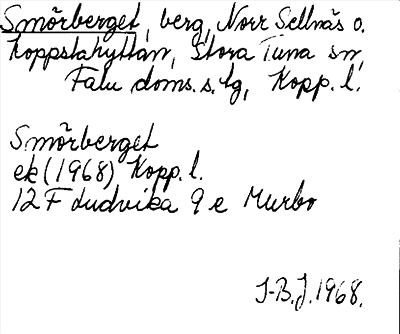 Smörberget, berg, Norr Sellnäs o.
Koppslahyttan, Stora Tuna sn,
Falu doms. s. tg, Kopp. l.
Smörberget
ek (1968) Kopp. l.
12 F Ludvika 9 e Murbo
I-B.J. 1968.